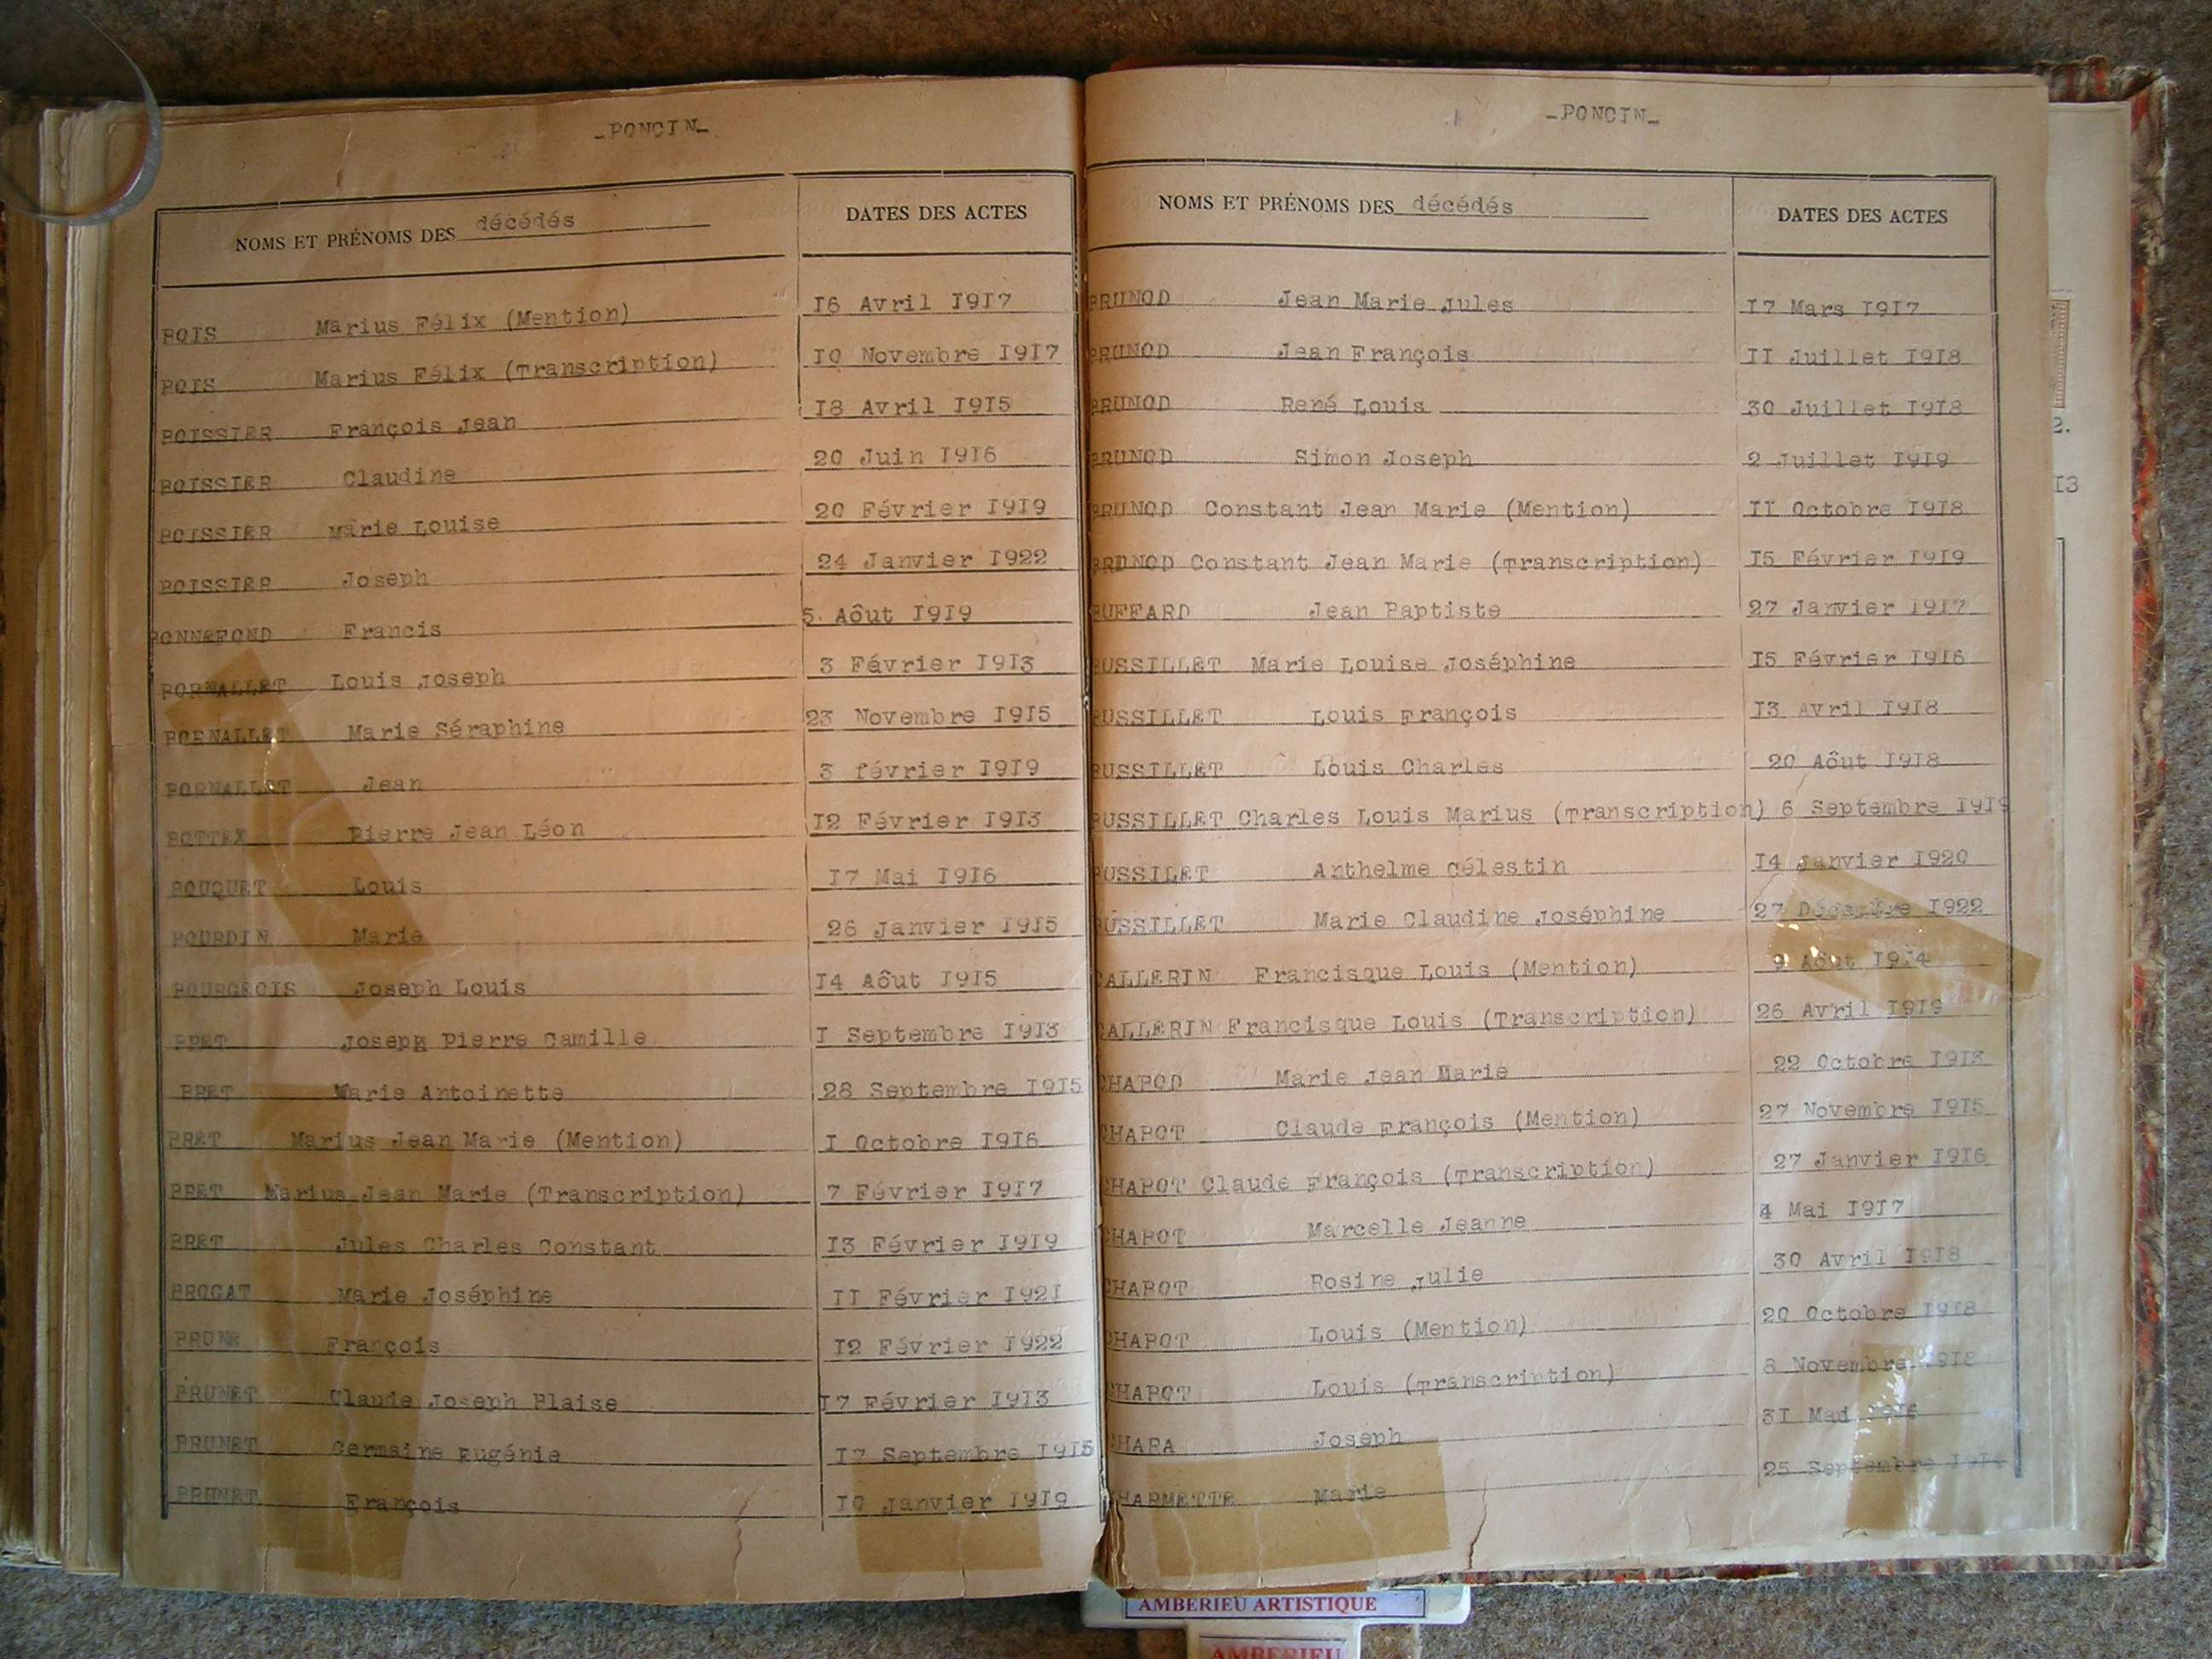 _PONCIN_
NOMS ET PRÉNOMS DES décédés DATES DES ACTES
BOIS Marius Félix (Mention) I6 Avril I9I7
BOIS Marius Félix (Transcription) I0 Novembre I9I7
BOISSIER François Jean I8 Avril I9I5
BOISSIER Claudine 20 Juin I9I6
BOISSIER Marie Louise 20 Février I9I9
BOISSIER Joseph 24 Janvier I922
BONNEFOND Francis 5 Aôut I9I9
BORNALLET Louis Joseph 3 Février I9I3
BORNALLET Marie Séraphine 23 Novembre I9I5
BORNALLET Jean 3 février I9I9
BOTTEX Pierre Jean Léon I2 Février I9I3
BOUQUET Louis I7 Mai I9I6
BOURDIN Marie 26 Janvier I9I5
BOURGEOIS Joseph Louis I4 Aôut I9I5
BRET Joseph Pierre Camille I Septembre I9I3
BRET Marie Antoinette 28 Septembre I9I5
BRET Marius Jean Marie (Mention) I Octobre I9I6
BRET Marius Jean Marie (Transcription) 7 Février I9I7
BRET Jules Charles Constant I3 Février I9I9
BROCAT Marie Joséphine II Février I92I
BRUNE François I2 Février I922
BRUNET Claude Joseph Blaise I7 Février I9I3
BRUNET Germaine Eugénie I7 Septembre I9I5
BRUNET François I0 Janvier I9I9
_PONCIN_
NOMS ET PRÉNOMS DES décédés DATES DES ACTES
BRUNOD Jean Marie Jules I7 Mars I9I7
BRUNOD Jean François II Juillet I9I8
BRUNOD René Louis 30 Juillet I9I8
BRUNOD Simon Joseph 2 Juillet I9I9
BRUNOD Constant Jean Marie (Mention) II Octobre I9I8
BRUNOD Constant Jean Marie (Transcription) I5 Février I9I9
BUFFARD Jean Baptiste 27 Janvier I9I7
BUSSILLET Marie Louise Joséphine I5 Février I9I6
BUSSILLET Louis François I3 Avril I9I8
BUSSILLET Louis Charles 20 Aôut I9I8
BUSSILLET Charles Louis Marius (Transcription) 6 Septembre I9I9
BUSSILET Anthelme Célestin I4 Janvier I920
BUSSILLET Marie Claudine Joséphine 27 Décembre I922
CALLERIN Francisque Louis (Mention) 9 Aôut I9I4
CALLERIN Francisque Louis (Transcription) 26 Avril I9I9
CHABOD Marie Jean Marie 22 Octobre I9I3
CHABOT Claude François (Mention) 27 Novembre I9I5
CHABOT Claude François (Transcription) 27 Janvier I9I6
CHABOT Marcelle Jeanne 4 Mai I9I7
CHABOT Rosine Julie 30 Avril I9I8
CHABOT Louis (Mention) 20 Octobre I9I8
CHABOT Louis (Transcription) 8 Novembre I9I8
CHARA Joseph 3I Mai
CHARMETTE Marie 25 Septembre
2.
I3
AMBERIEU ARTISTIQUE
AMBERIEU